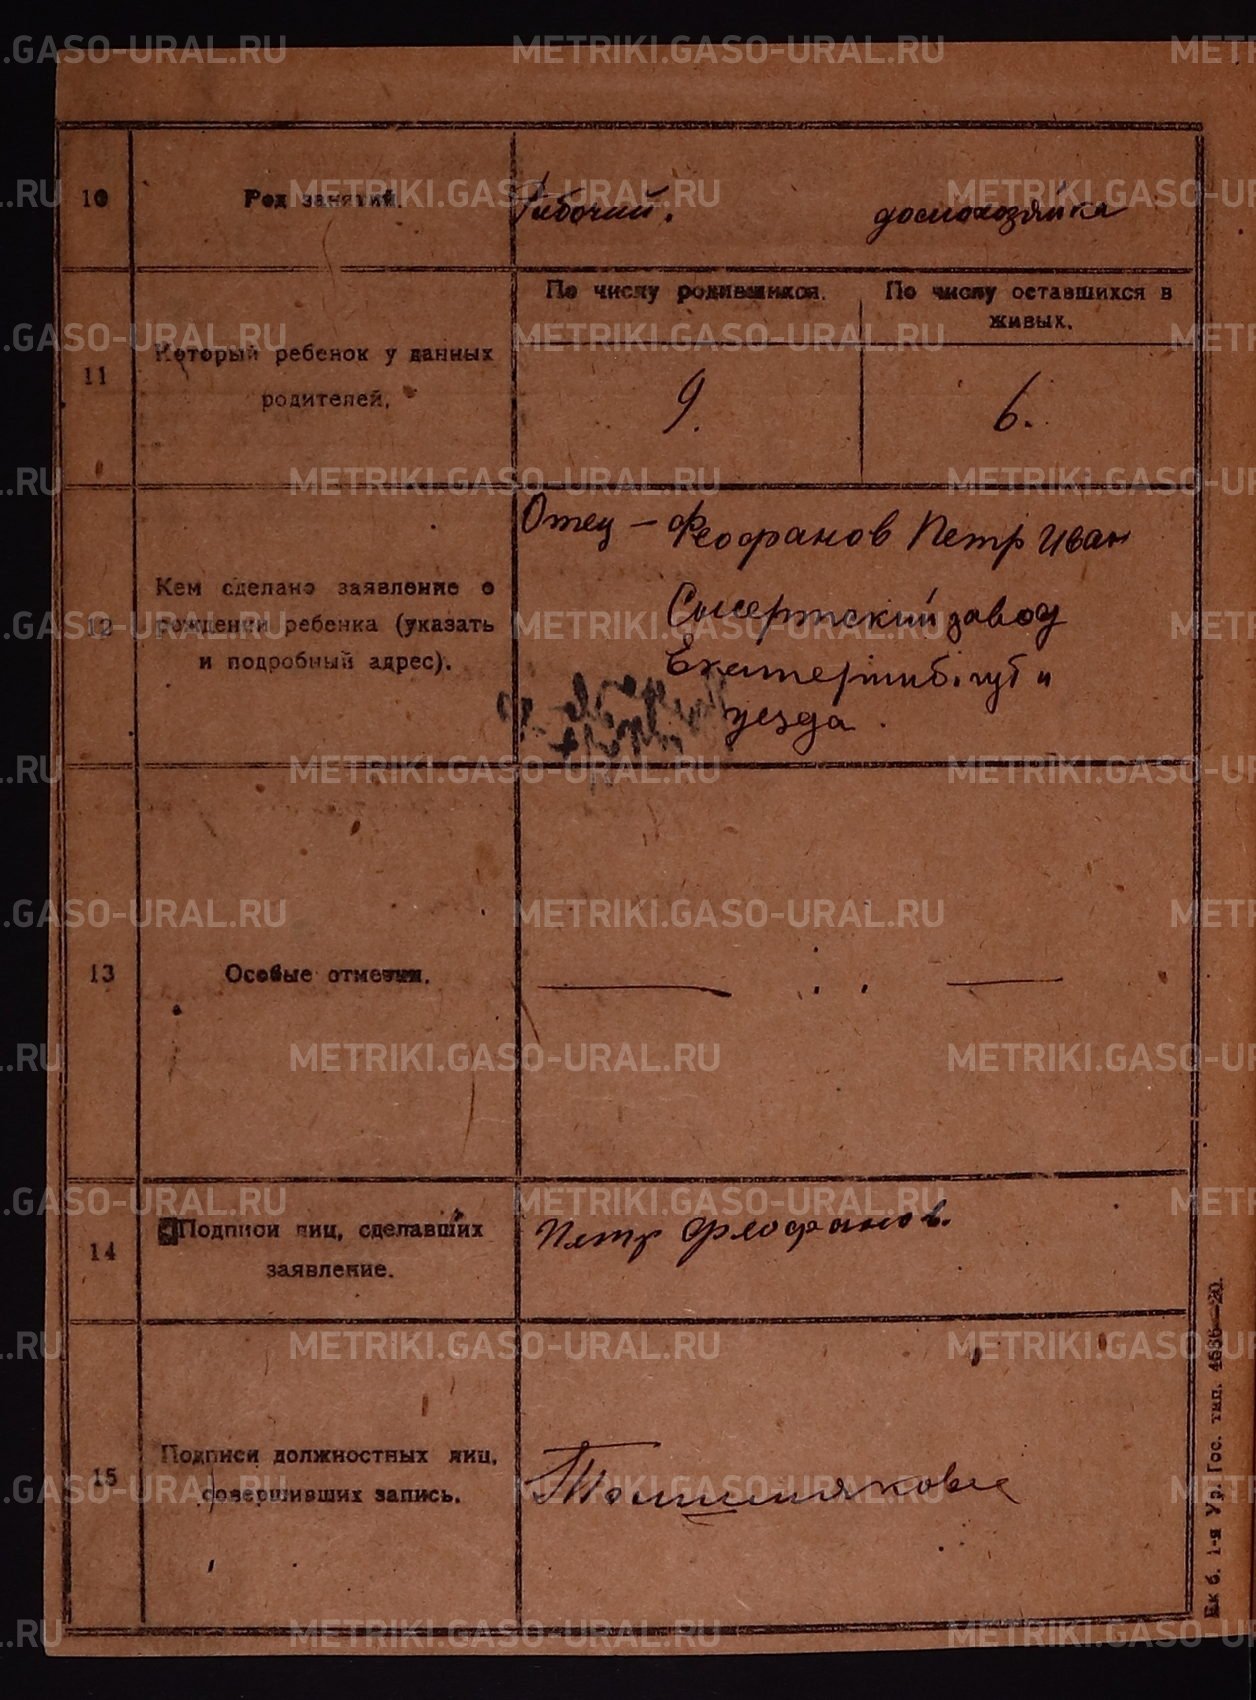 10 Род занятий. Рабочий. домохозяйка
По числу родившихся. По числу оставшихся в
живых.
11 Который ребенок у данных
родителей.
9. 6.
12 Кем сделано заявление о
рождении ребенка (указать
и подробный адрес).
Отец — Феофанов Петр Иван
Сысертский завод
Екатеринб. губ и
уезда.
13 Особые отметки.
14 Подписи лиц, сделавших
заявление.
Петр Феофанов.
15 Подписи должностных лиц,
совершивших запись.
Ек б. 1-я Ур. Гос. тип. 4586—20.
METRIKI.GASO-URAL.RU